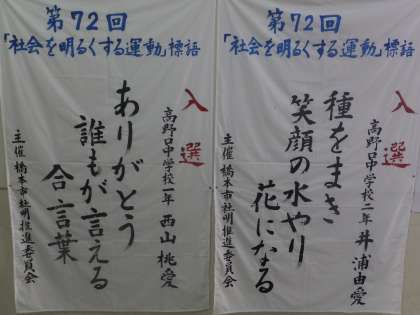 第72回
「社会を明るくする運動」標語
入選
高野口中学校一年 西山桃愛
ありがとう
誰もが言える
合言葉
主催 橋本市社明推進委員会
第72回
「社会を明るくする運動」標語
入選
高野口中学校二年 井浦由愛
種をまき
笑顔の水やり
花になる
主催 橋本市社明推進委員会